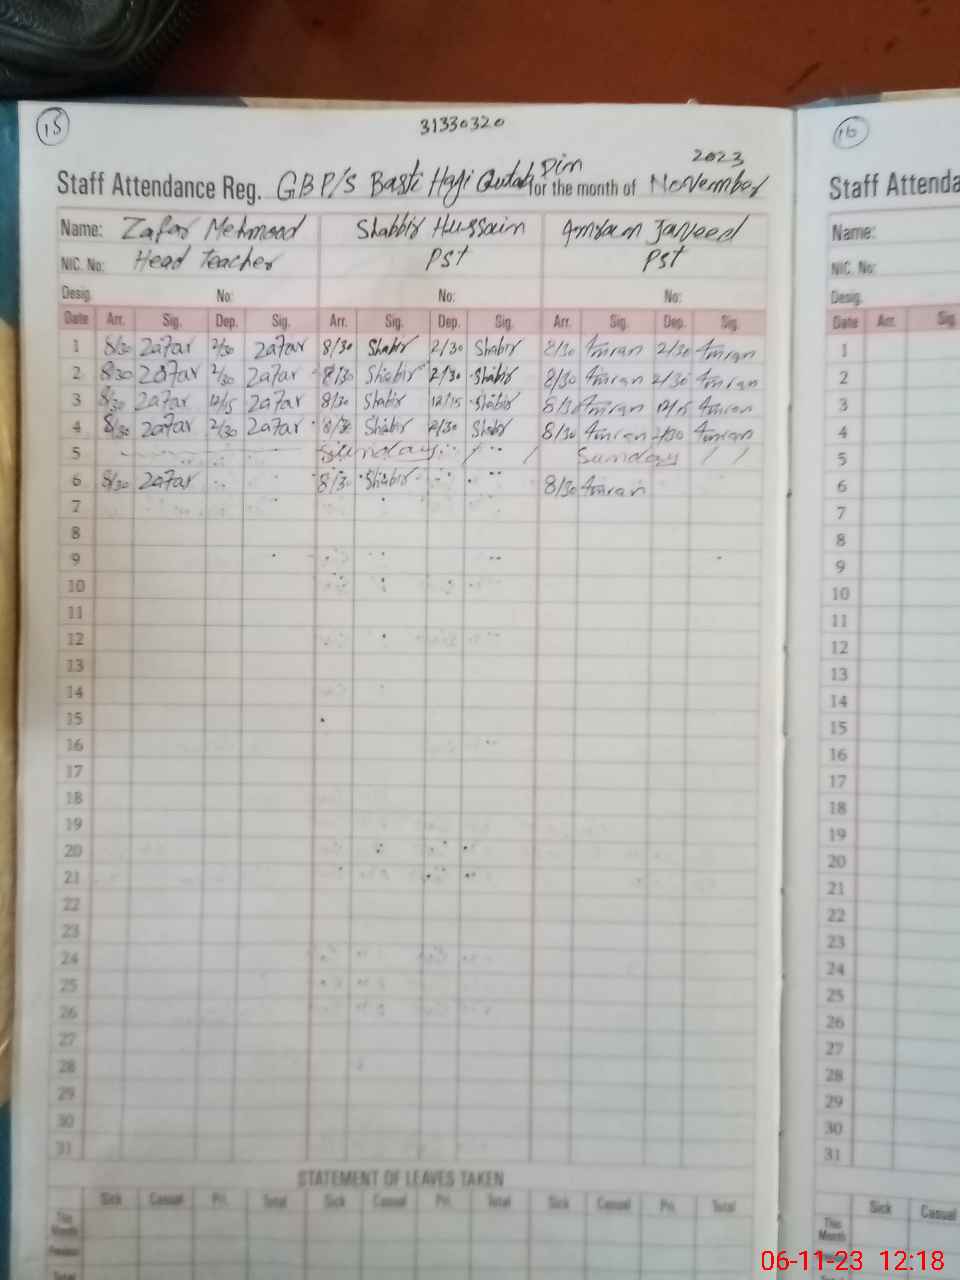 15
31330320
16
2023
Staff Attendance Reg. GBP/S Basti Haji Qutab Din for the month of November
Staff Attenda
Name: Zafar Mehmood Shabbir Hussain Amran Javeed
Name:
NIC. No: Head Teacher PST PST
NIC. No:
Desig. No: No: No:
Desig.
Date Arr. Sig. Dep. Sig. Arr. Sig. Dep. Sig. Arr. Sig. Dep. Sig.
Date Arr. Sig.
1 8/30 Zafar 2/30 Zafar 8/30 Shabir 2/30 Shabir 8/30 Amran 2/30 Amran
1
2 8/30 Zafar 2/30 Zafar 8/30 Shabir 2/30 Shabir 8/30 Amran 2/30 Amran
2
3 8/30 Zafar 12/15 Zafar 8/30 Shabir 12/15 Shabir 8/30 Amran 12/15 Amran
3
4 8/30 Zafar 2/30 Zafar 8/30 Shabir 2/30 Shabir 8/30 Amran 2/30 Amran
4
5 Sunday Sunday
5
6 8/30 Zafar 8/30 Shabir 8/30 Amran
6
7
7
8
8
9
9
10
10
11
11
12
12
13
13
14
14
15
15
16
16
17
17
18
18
19
19
20
20
21
21
22
22
23
23
24
24
25
25
26
26
27
27
28
28
29
29
30
30
31
31
STATEMENT OF LEAVES TAKEN
Sick Casual Pri. Total Sick Casual Pri. Total Sick Casual Pri. Total
Sick Casual
This Month
This Month
Previous
Total
06-11-23 12:18